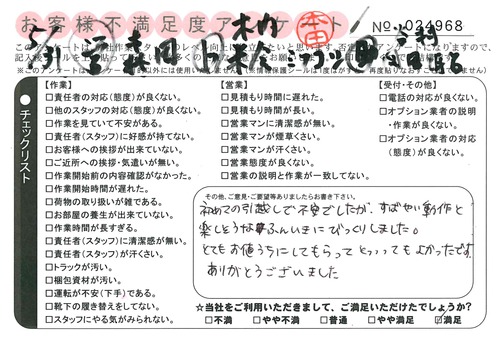 お客様不満足度アンケート
No. 024968
【作業】
□責任者の対応(態度)が良くない。
□他のスタッフの対応(態度)が良くない。
□作業を見ていて不安がある。
□責任者(スタッフ)に好感が持てない。
□お客様への挨拶が出来ていない。
□ご近所への挨拶・気遣いが無い。
□作業開始前の内容確認がなかった。
□作業開始時間が遅れた。
□荷物の取り扱いが雑である。
□お部屋の養生が出来ていない。
□作業時間が長すぎる。
□責任者(スタッフ)に清潔感が無い。
□責任者(スタッフ)が汗くさい。
□トラックが汚い。
□梱包資材が汚い。
□運転が不安(下手)である。
□靴下の履き替えをしてない。
□スタッフにやる気がみられない。
【営業】
□見積もり時間に遅れた。
□見積もり時間が長い。
□営業マンに清潔感が無い。
□営業マンが煙草くさい。
□営業マンが汗くさい。
□営業態度が良くない。
□営業の説明と作業が一致してない。
【受付・その他】
□電話の対応が良くない。
□オプション業者の説明
・作業が良くない。
□オプション業者の対応
(態度)が良くない。
チェックリスト
その他、ご意見・ご要望等ありましたらお書き下さい。
初めての引越しで不安でしたが、すばやい動作と
楽しそうなふんいきにびっくりしました。
とてもお値うちにしてもらってとってもよかったです。
ありがとうございました
☆当社をご利用いただきまして、ご満足いただけたでしょうか?
□不満 □やや不満 □普通 □やや満足 ☑満足